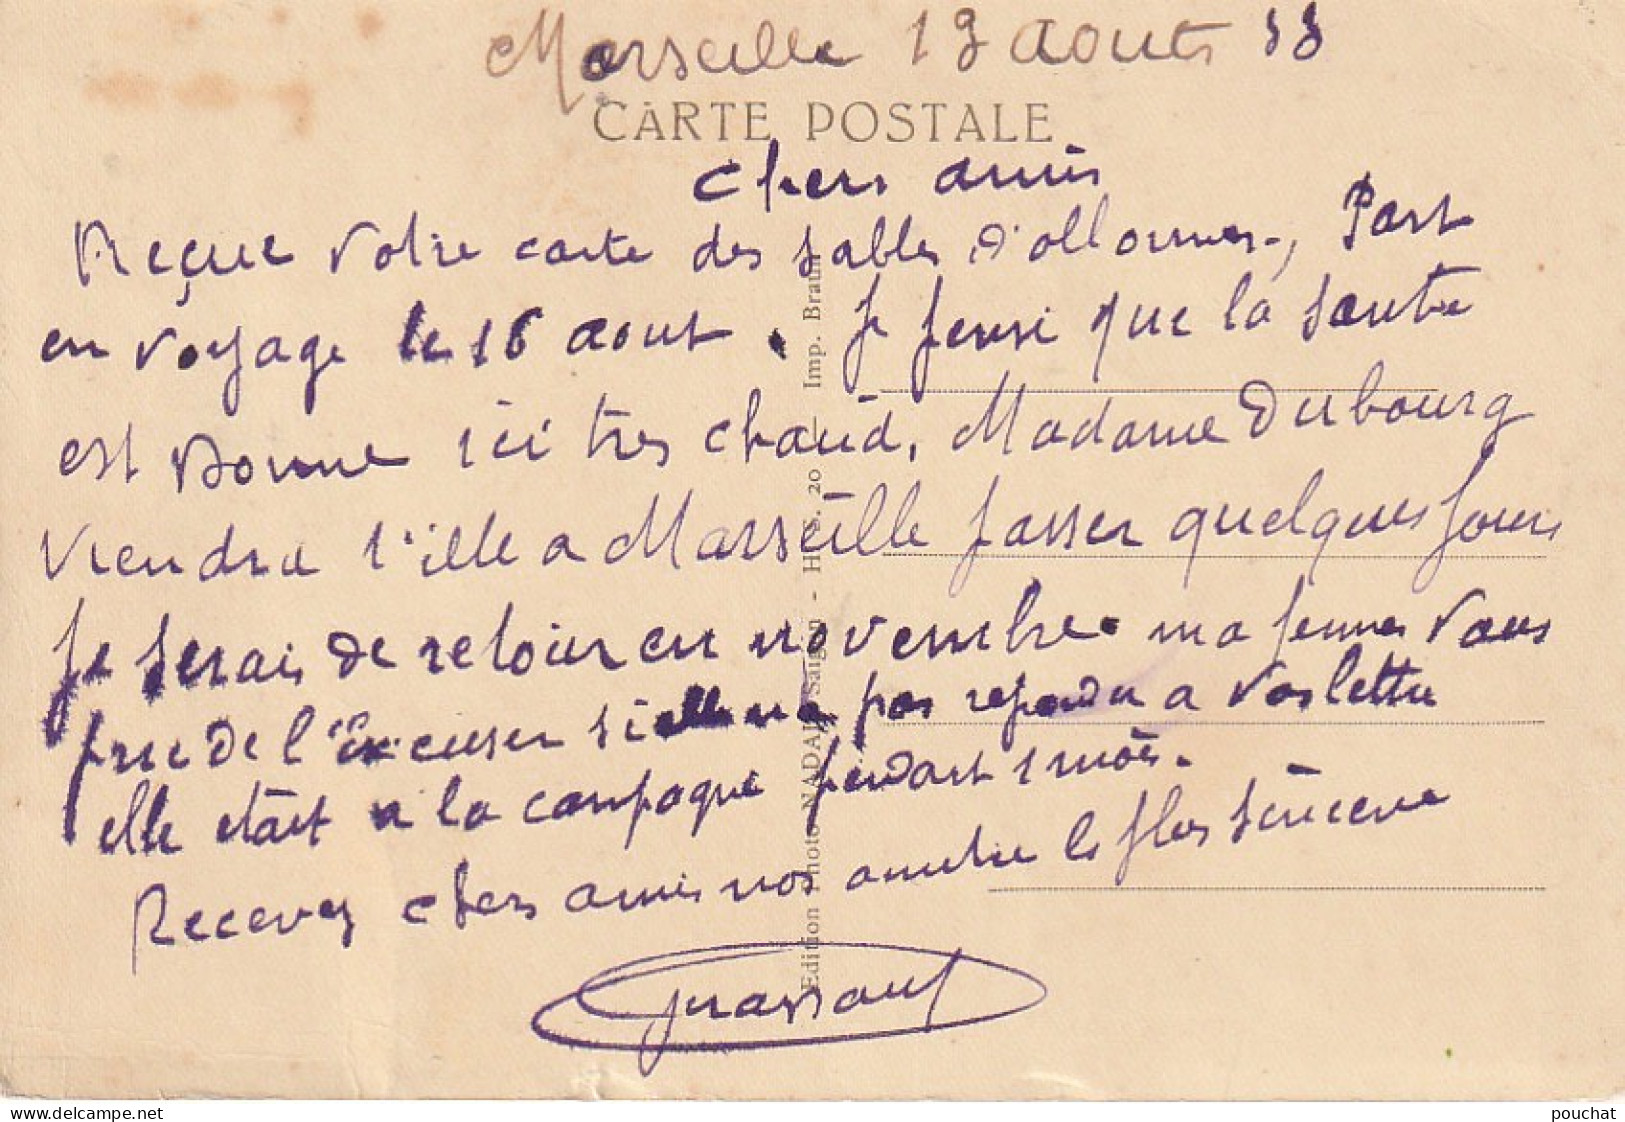 Marseille 13 aouts 53
CARTE POSTALE
chers amis
Reçue votre carte des sables d'ollonnes, Part
en voyage le 16 aout. Je pense que la sante
est Bonne ici tres chaud, Madame Dubourg
viendra l'ille a Marseille passer quelques jours
Je serais de retour en novembre. ma femme vous
prie de l'Excuser si elle na pas repondu a vos lettre
elle etait a la campagne pendant 1 mois.
Recevez chers amis nos amitie le plus sincere
Edition Photo NADAL Saigon - H.S. 20 - Imp. Braun
pouchat
www.delcampe.net